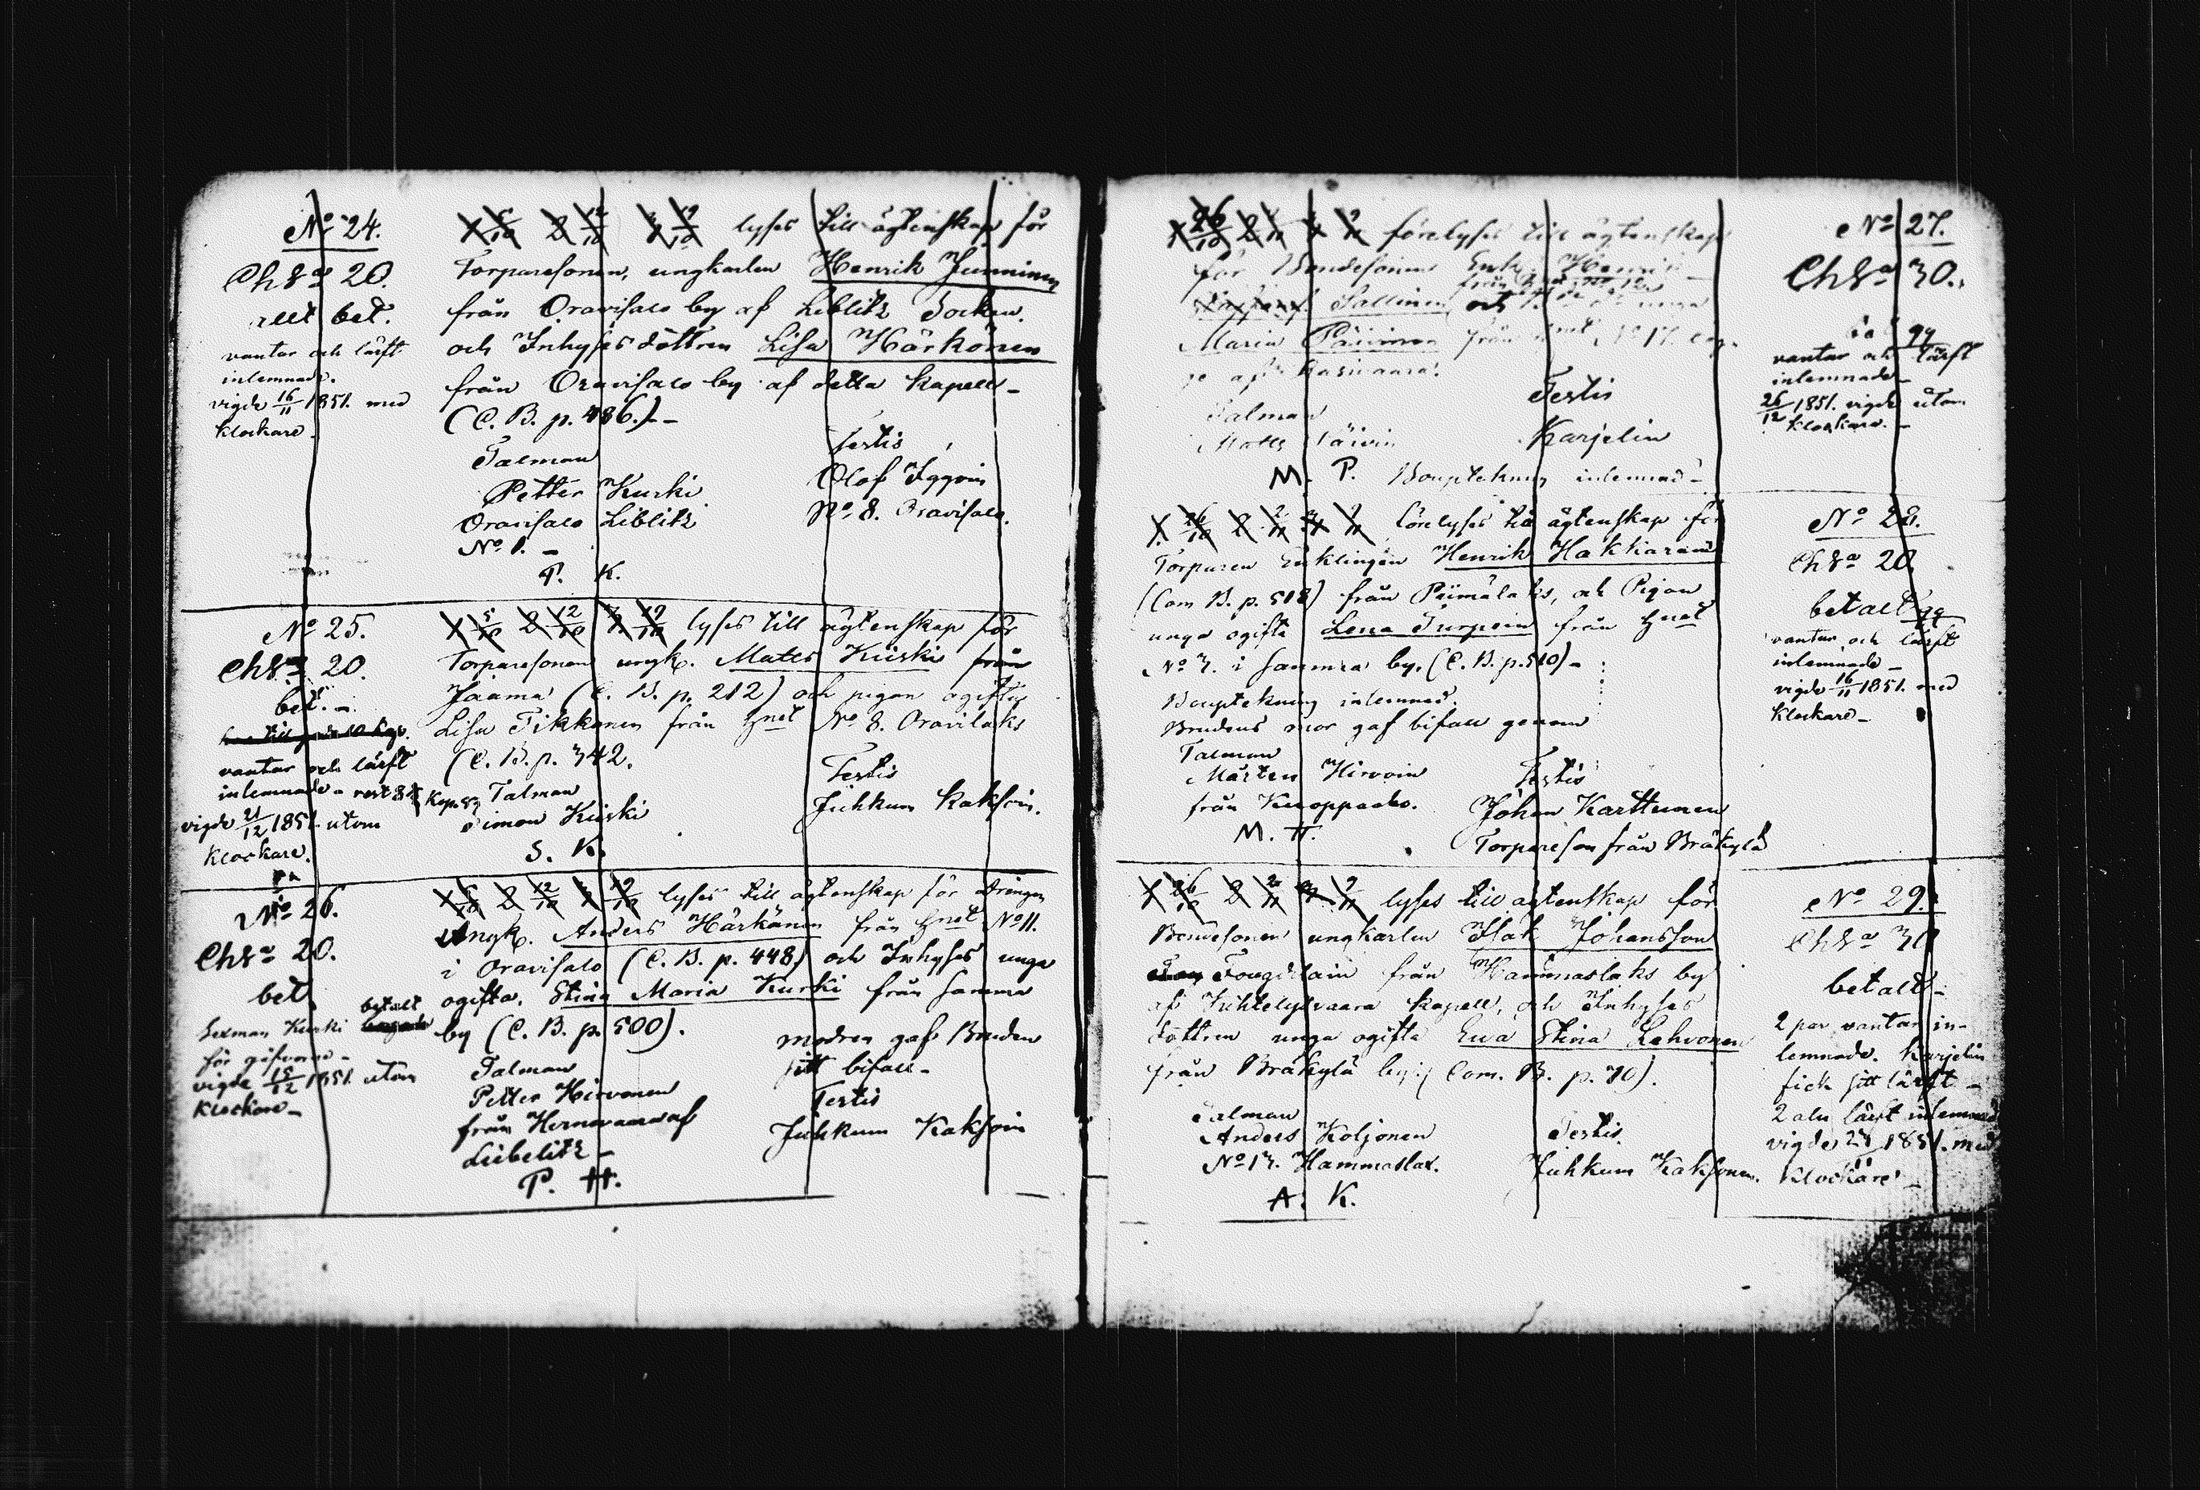 No 24.
Ch Sa 20.
allt bet.
vantar och lärft
inlemnade.
vigde 16/11 1851. med
klockare.
1 5/10 2 12/10 3 19/10 lyses till ägtenskap för
Torparesonen, ungkarlen Henrik Junninen
från Oravisalo by af Liblitz Socken.
och Inhyses dottren Lisa Härkönen
från Oravisalo by af detta kapell –
(C. B. p. 486.) –
Talman
Petter Kurki
Oravisalo Liblitz
No 1. –
P. K.
Testis
Olof Iggoin
No 8. Oravisalo.
No 25.
Ch Sa 20.
bet. –
vantar och lärft
inlemnade – rest 8
vigde 21/12 1851. utom
klockare.
1 5/10 2 12/10 3 19/10 lyses till ägtenskap för
Torparesonen ungk. Matts Kiiski från
Jaama (C. B. p. 212) och pigan ogifta
Lisa Tikkanen från Hnet No 8. Oravilaks
(C. B. p. 342.
Talman
Simon Kiiski
S. K.
Testis
Juhkum Kaksoin.
No 26.
Ch Sa 20.
bet.
Sexman Kurki betalt
för gåfvorne –
vigde 15/12 1851. utom
klockare –
1 5/10 2 12/10 3 19/10 lyses till ägtenskap för Drängen
Ungk. Anders Härkänen från Hnet No 11.
i Oravisalo (C. B. p. 448) och Inhyses unga
ogifta, Stina Maria Kurki från samma
by (C. B. p. 500).
Talman
Petter Hirvonen
från af
Liebelitz –
P. H.
modren gaf Bruden
sitt bifall –
Testis
Juhkum Kaksoin
1 26/10 2 2/11 3 9/11 förelyses till ägtenskap
för Bondesonen Enkl. Henrik
Sallinen och unga
Maria Päivinen från No 17.
Talman
Matts Päivin
M. P. Bouptekning inlemnad –
Testis
Karjelin
No 27.
Ch Sa 30.
vantar och lärft
inlemnade –
26/12 1851. vigde utom
klockare. –
1 26/10 2 2/11 3 9/11 förelyses till ägtenskap för
Torparen Enklingen Henrik Hakkarain
(Com B. p. 518) från Piimälaks, och Pigan
unga ogifta Lena Turpoin från Hnet
No 3. i samma by. (C. B. p. 510) –
Bouptekning inlemnad.
Brudens mor gaf bifall genom
Talman
Mårten Hirvoin
från Kuoppaaho.
M. H.
Testis
Johan Karttunen
Torpareson från Bräkylä
No 28.
Ch Sa 20.
betalt
vantar och lärft
inlemnade –
vigde 16/11 1851. med
klockare –
1 26/10 2 2/11 3 9/11 lyses till ägtenskap för
Bondesonen ungkarlen Isak Johansson
Fougdelain från Hammaslaks by
af Kihtelysvaara kapell, och Inhyses
dottren unga ogifta Ewa Stina Lehvonen
från Bräkylä by (Com. B. p. 70).
Talman
Anders Koljonen
No 13. Hammaslax.
A. K.
Testis.
Juhkum Kaksonen.
No 29.
Ch Sa 30
betalt –
2 par vantar in-
lemnade. Karjelin
fick sitt lärft –
2 aln lärft inlemnad
vigde 1851. med
klockare –